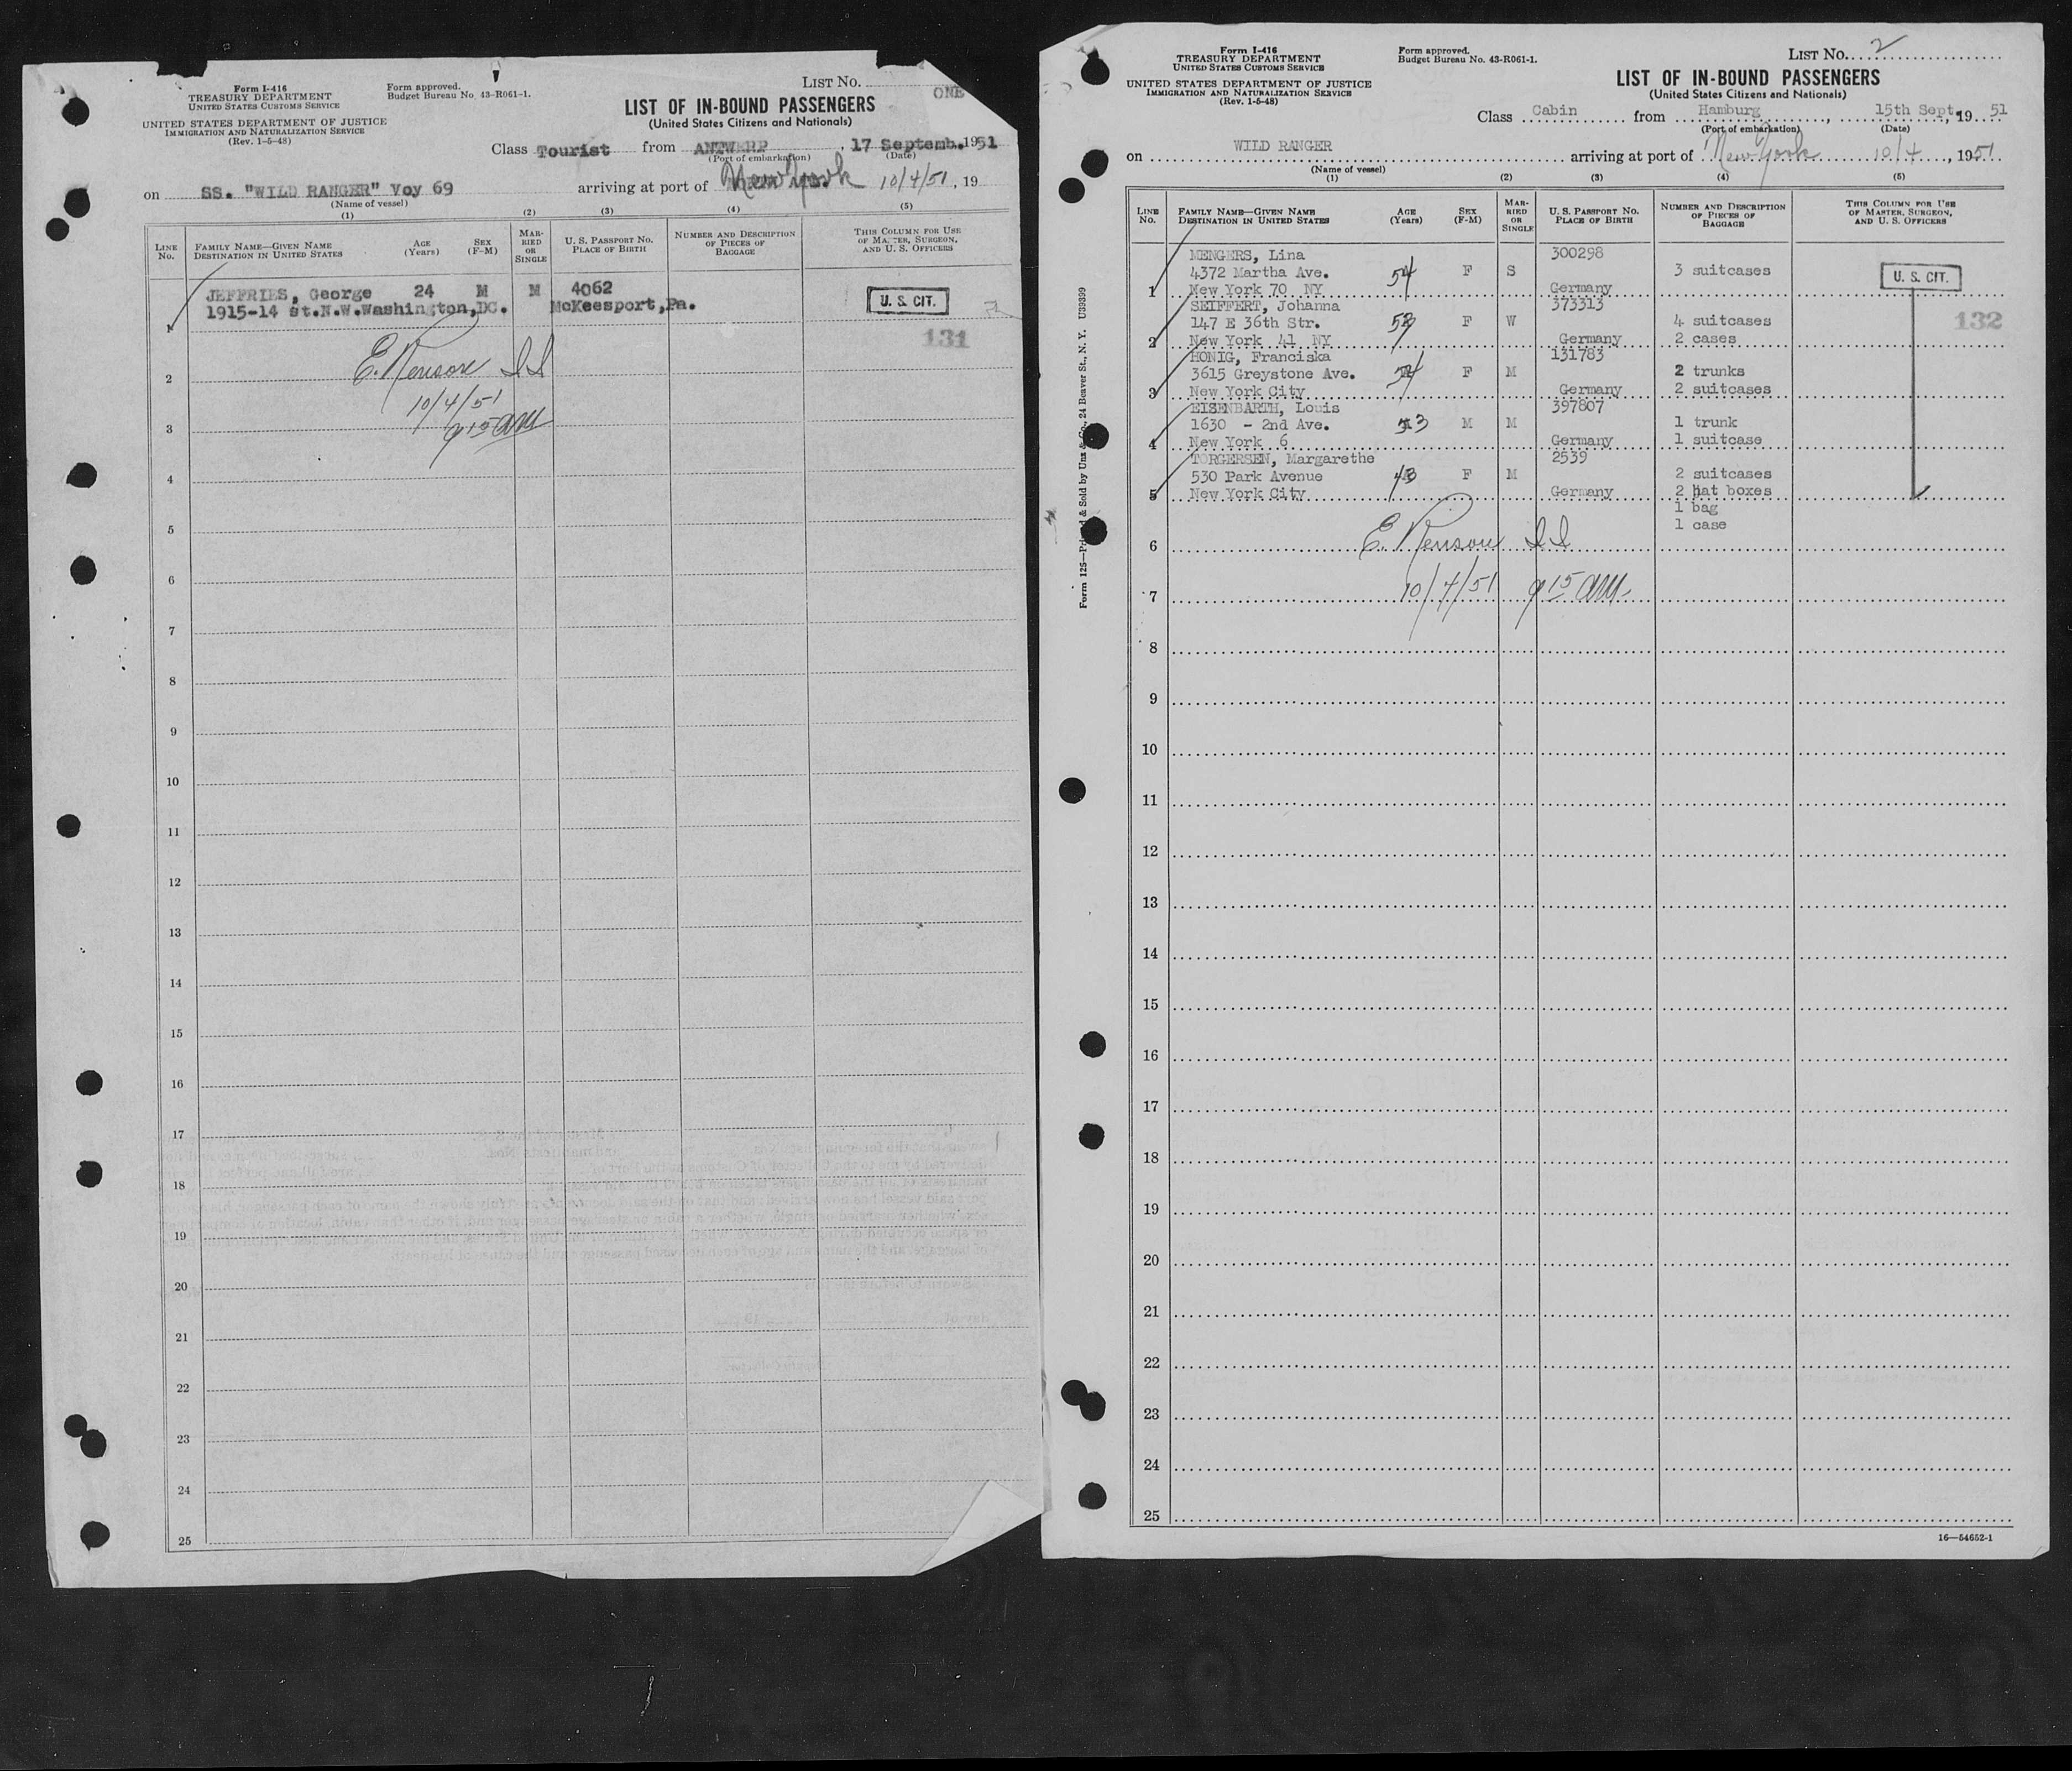 Form I-416
TREASURY DEPARTMENT
UNITED STATES CUSTOMS SERVICE
UNITED STATES DEPARTMENT OF JUSTICE
IMMIGRATION AND NATURALIZATION SERVICE
(Rev. 1-5-48)
Form approved.
Budget Bureau No. 43-R061-1.
LIST No. ONE
LIST OF IN-BOUND PASSENGERS
(United States Citizens and Nationals)
Class Tourist from ANTWERP, 17 Septemb. 1951
(Port of embarkation) (Date)
on SS. "WILD RANGER" Voy 69 arriving at port of New York 10/4/51, 19
(Name of vessel)
(1) (2) (3) (4) (5)
LINE No. FAMILY NAME—GIVEN NAME DESTINATION IN UNITED STATES AGE (Years) SEX (F-M) MARRIED OR SINGLE U. S. PASSPORT No. PLACE OF BIRTH NUMBER AND DESCRIPTION OF PIECES OF BAGGAGE THIS COLUMN FOR USE OF MASTER, SURGEON, AND U. S. OFFICERS
JEFFRIES, George 24 M M 4062 U. S. CIT.
1 1915-14 st.N.W.Washington,DC. McKeesport,Pa.
131
2 E. Renson II
10/4/51
3 9 15 AM
4
5
6
7
8
9
10
11
12
13
14
15
16
17
18
19
20
21
22
23
24
25
Form I-416
TREASURY DEPARTMENT
UNITED STATES CUSTOMS SERVICE
UNITED STATES DEPARTMENT OF JUSTICE
IMMIGRATION AND NATURALIZATION SERVICE
(Rev. 1-5-48)
Form approved.
Budget Bureau No. 43-R061-1.
LIST No. 2
LIST OF IN-BOUND PASSENGERS
(United States Citizens and Nationals)
Class Cabin from Hamburg, 15th Sept, 19 51
(Port of embarkation) (Date)
on WILD RANGER arriving at port of New York 10/4, 1951
(Name of vessel)
(1) (2) (3) (4) (5)
LINE No. FAMILY NAME—GIVEN NAME DESTINATION IN UNITED STATES AGE (Years) SEX (F-M) MARRIED OR SINGLE U. S. PASSPORT No. PLACE OF BIRTH NUMBER AND DESCRIPTION OF PIECES OF BAGGAGE THIS COLUMN FOR USE OF MASTER, SURGEON, AND U. S. OFFICERS
MENGERS, Lina 300298
4372 Martha Ave. 54 F S 3 suitcases U. S. CIT.
1 New York 70 NY Germany
SEIFFERT, Johanna 373313
147 E 36th Str. F W 4 suitcases 132
2 New York 41 NY Germany 2 cases
HONIG, Franciska 131783
3615 Greystone Ave. 54 F M 2 trunks
3 New York City Germany 2 suitcases
EISENBARTH, Louis 397807
1630 - 2nd Ave. 53 M M 1 trunk
4 New York 6 Germany 1 suitcase
TORGERSEN, Margarethe 2539
530 Park Avenue F M 2 suitcases
5 New York City Germany 2 hat boxes
1 bag
1 case
6 E. Renson II
7 10/4/51 9 15 AM
8
9
10
11
12
13
14
15
16
17
18
19
20
21
22
23
24
25
16—54652-1